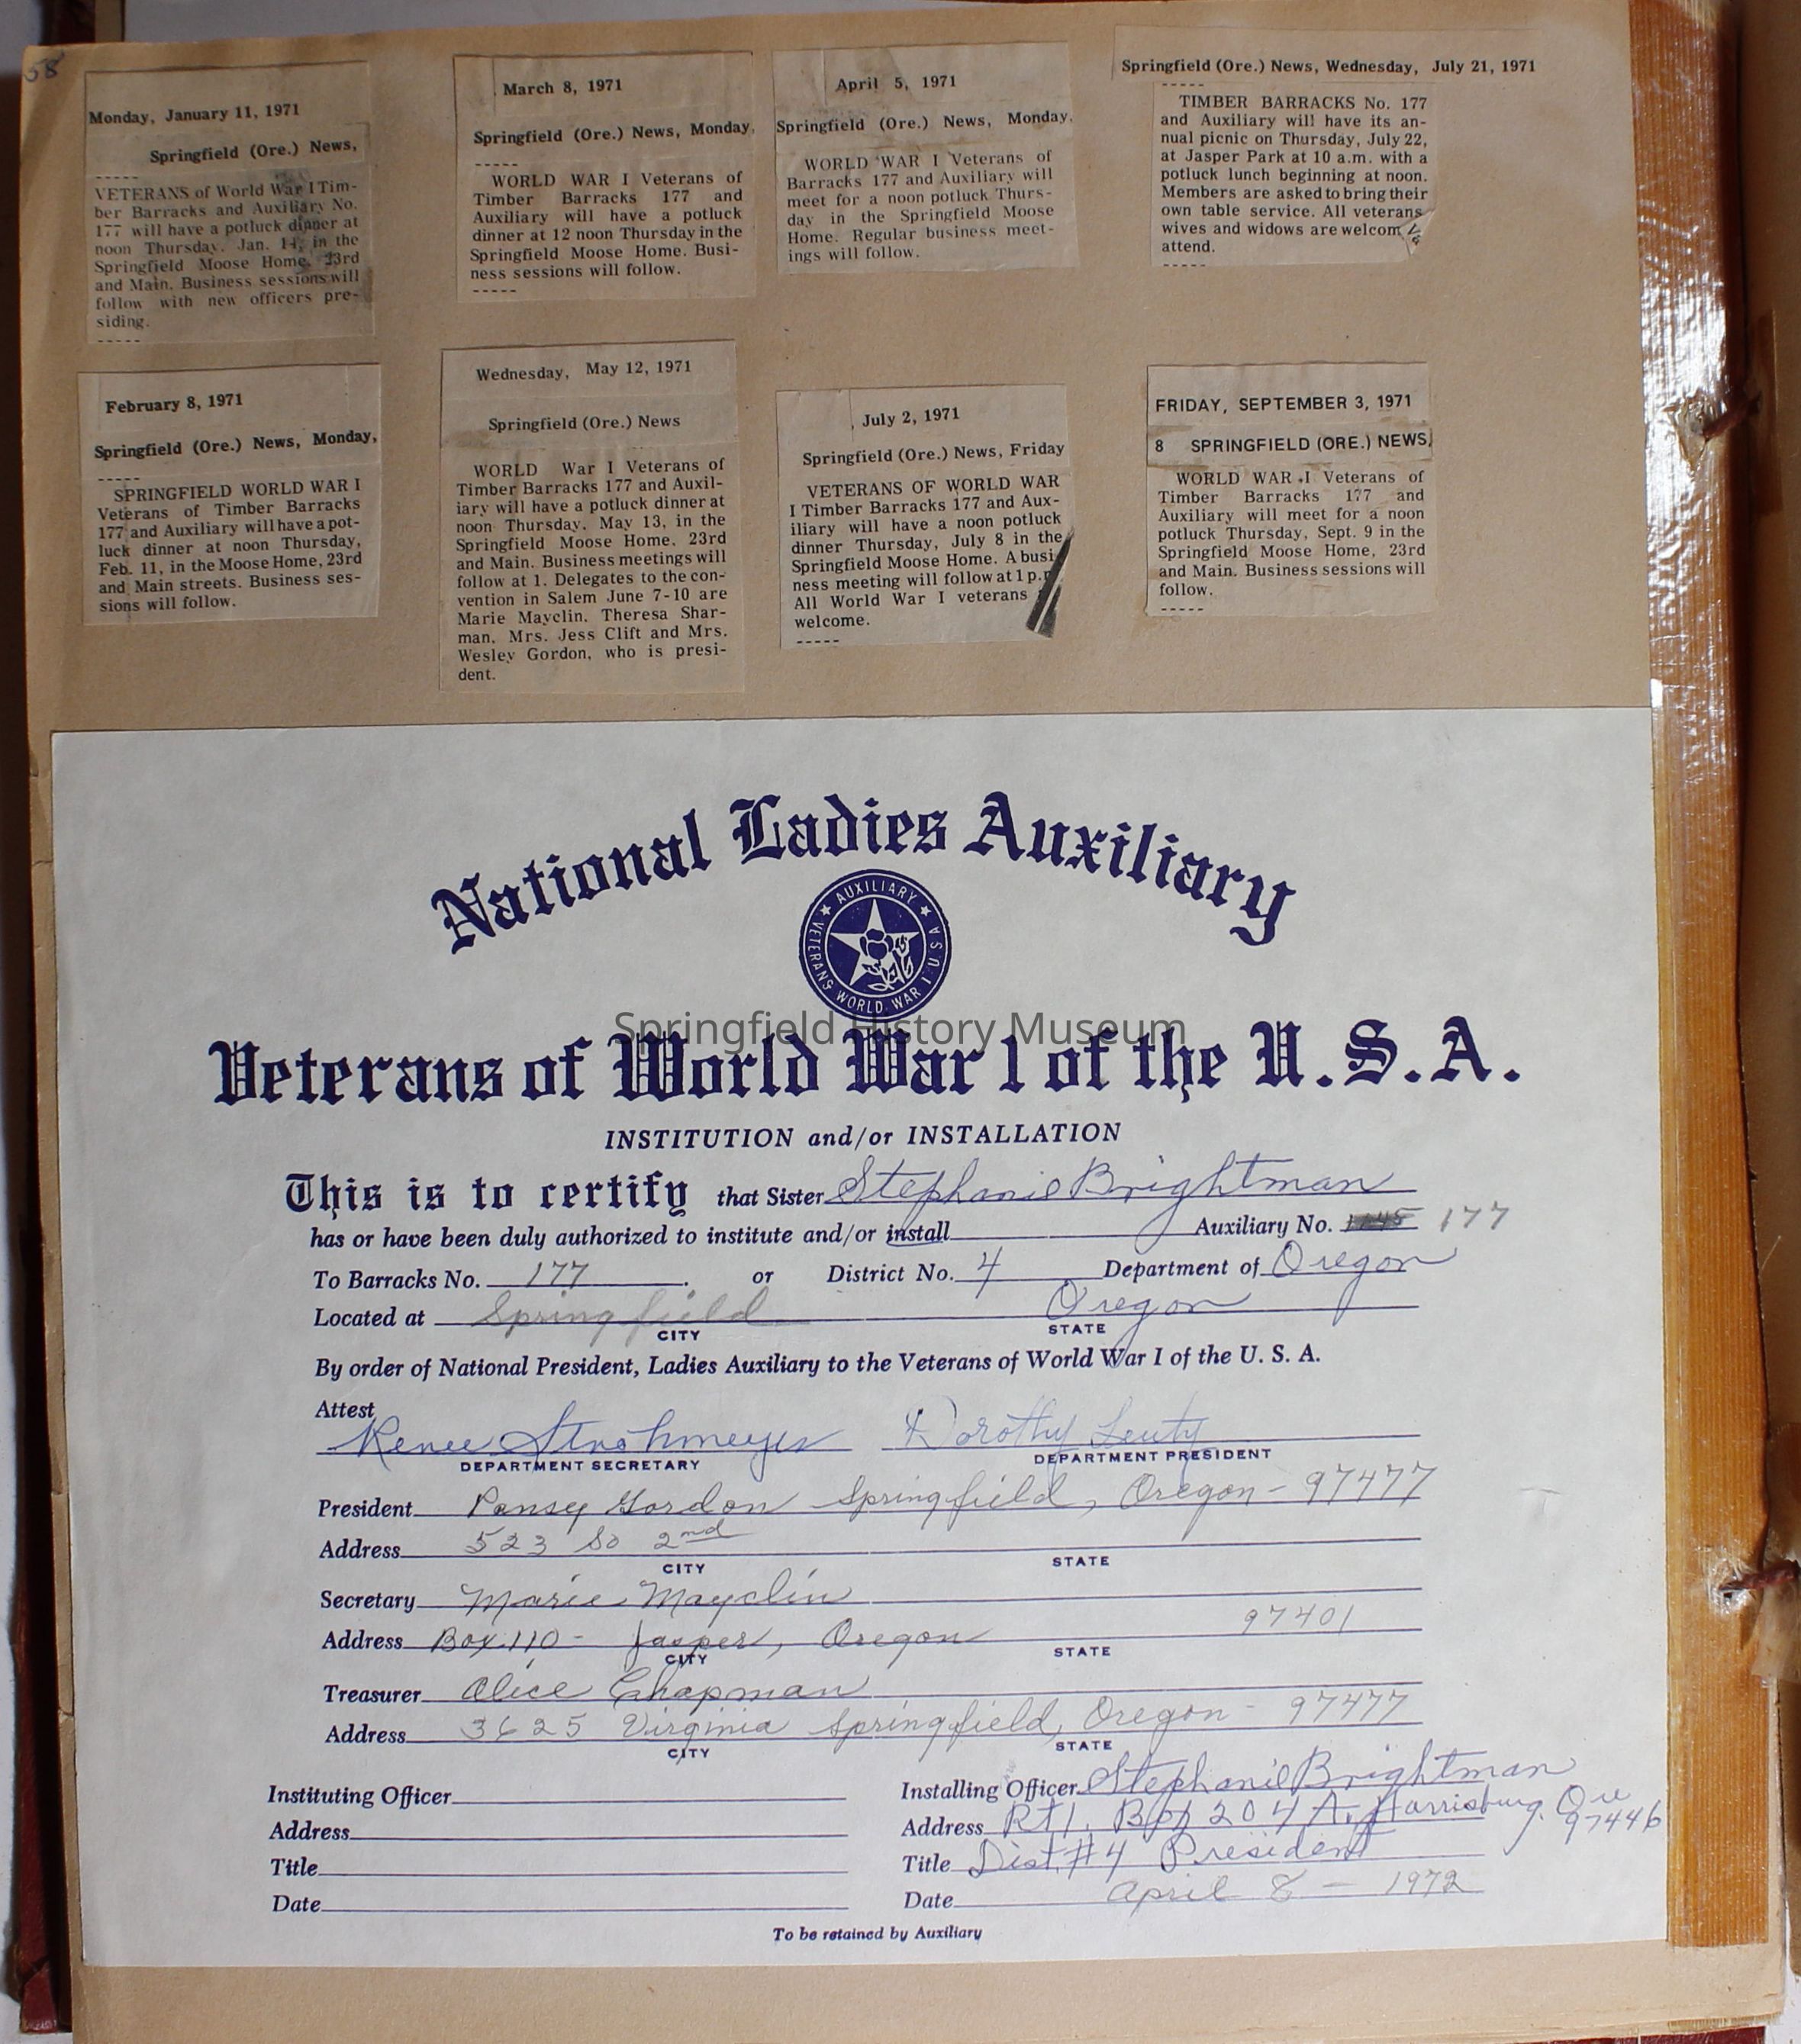 58
Monday, January 11, 1971
Springfield (Ore.) News,
-----
VETERANS of World War I Tim-
ber Barracks and Auxiliary No.
177 will have a potluck dinner at
noon Thursday, Jan. 14, in the
Springfield Moose Home, 23rd
and Main. Business sessions will
follow with new officers pre-
siding.
-----
March 8, 1971
Springfield (Ore.) News, Monday,
-----
WORLD WAR I Veterans of
Timber Barracks 177 and
Auxiliary will have a potluck
dinner at 12 noon Thursday in the
Springfield Moose Home. Busi-
ness sessions will follow.
-----
April 5, 1971
Springfield (Ore.) News, Monday,
WORLD WAR I Veterans of
Barracks 177 and Auxiliary will
meet for a noon potluck Thurs-
day in the Springfield Moose
Home. Regular business meet-
ings will follow.
Springfield (Ore.) News, Wednesday, July 21, 1971
-----
TIMBER BARRACKS No. 177
and Auxiliary will have its an-
nual picnic on Thursday, July 22,
at Jasper Park at 10 a.m. with a
potluck lunch beginning at noon.
Members are asked to bring their
own table service. All veterans
wives and widows are welcom
attend.
-----
February 8, 1971
Springfield (Ore.) News, Monday,
-----
SPRINGFIELD WORLD WAR I
Veterans of Timber Barracks
177 and Auxiliary will have a pot-
luck dinner at noon Thursday,
Feb. 11, in the Moose Home, 23rd
and Main streets. Business ses-
sions will follow.
Wednesday, May 12, 1971
Springfield (Ore.) News
WORLD War I Veterans of
Timber Barracks 177 and Auxil-
iary will have a potluck dinner at
noon Thursday, May 13, in the
Springfield Moose Home, 23rd
and Main. Business meetings will
follow at 1. Delegates to the con-
vention in Salem June 7-10 are
Marie Mayclin, Theresa Shar-
man, Mrs. Jess Clift and Mrs.
Wesley Gordon, who is presi-
dent.
July 2, 1971
Springfield (Ore.) News, Friday
VETERANS OF WORLD WAR
I Timber Barracks 177 and Aux-
iliary will have a noon potluck
dinner Thursday, July 8 in the
Springfield Moose Home. A busi-
ness meeting will follow at 1 p.m
All World War I veterans
welcome.
-----
FRIDAY, SEPTEMBER 3, 1971
8 SPRINGFIELD (ORE.) NEWS,
WORLD WAR I Veterans of
Timber Barracks 177 and
Auxiliary will meet for a noon
potluck Thursday, Sept. 9 in the
Springfield Moose Home, 23rd
and Main. Business sessions will
follow.
-----
National Ladies Auxiliary
AUXILIARY
VETERANS WORLD WAR I U.S.A
Springfield History Museum
Veterans of World War 1 of the U.S.A.
INSTITUTION and/or INSTALLATION
This is to certify that Sister Stephanie Brightman
has or have been duly authorized to institute and/or install Auxiliary No. 177
To Barracks No. 177 . or District No. 4 Department of Oregon
Located at Springfield Oregon
CITY STATE
By order of National President, Ladies Auxiliary to the Veterans of World War I of the U. S. A.
Attest
Renee Strohmeyer Dorothy Leuty
DEPARTMENT SECRETARY DEPARTMENT PRESIDENT
President Pansy Gordon Springfield, Oregon - 97477
Address 523 So 2nd
CITY STATE
Secretary Marie Mayclin
Address Box 110 - Jasper, Oregon 97401
CITY STATE
Treasurer Alice Chapman
Address 3625 Virginia Springfield, Oregon - 97477
CITY STATE
Instituting Officer
Address
Title
Date
Installing Officer Stephanie Brightman
Address Rt 1. Box 204 A. Harrisburg, Ore 97446
Title Dist. #4 President
Date April 8 - 1972
To be retained by Auxiliary